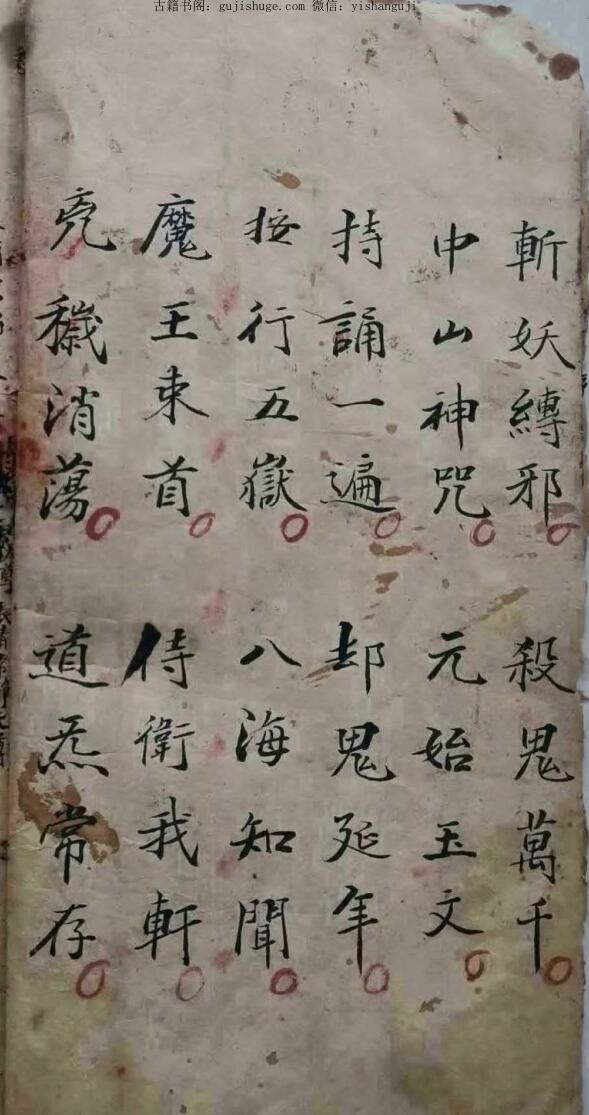 古籍书阁：gujishuge.com 微信：yishanguji
斬妖縛邪○ 殺鬼萬千○
中山神咒○ 元始玉文○
持誦一遍○ 却鬼延年○
按行五嶽○ 八海知聞○
魔王束首○ 侍衛我軒○
穢消蕩○ 道炁常存○